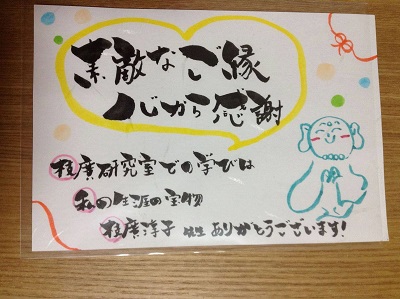 素敵なご縁
心から感謝
枝廣研究室での学びは
私の生涯の宝物
枝廣淳子 先生 ありがとうございます!